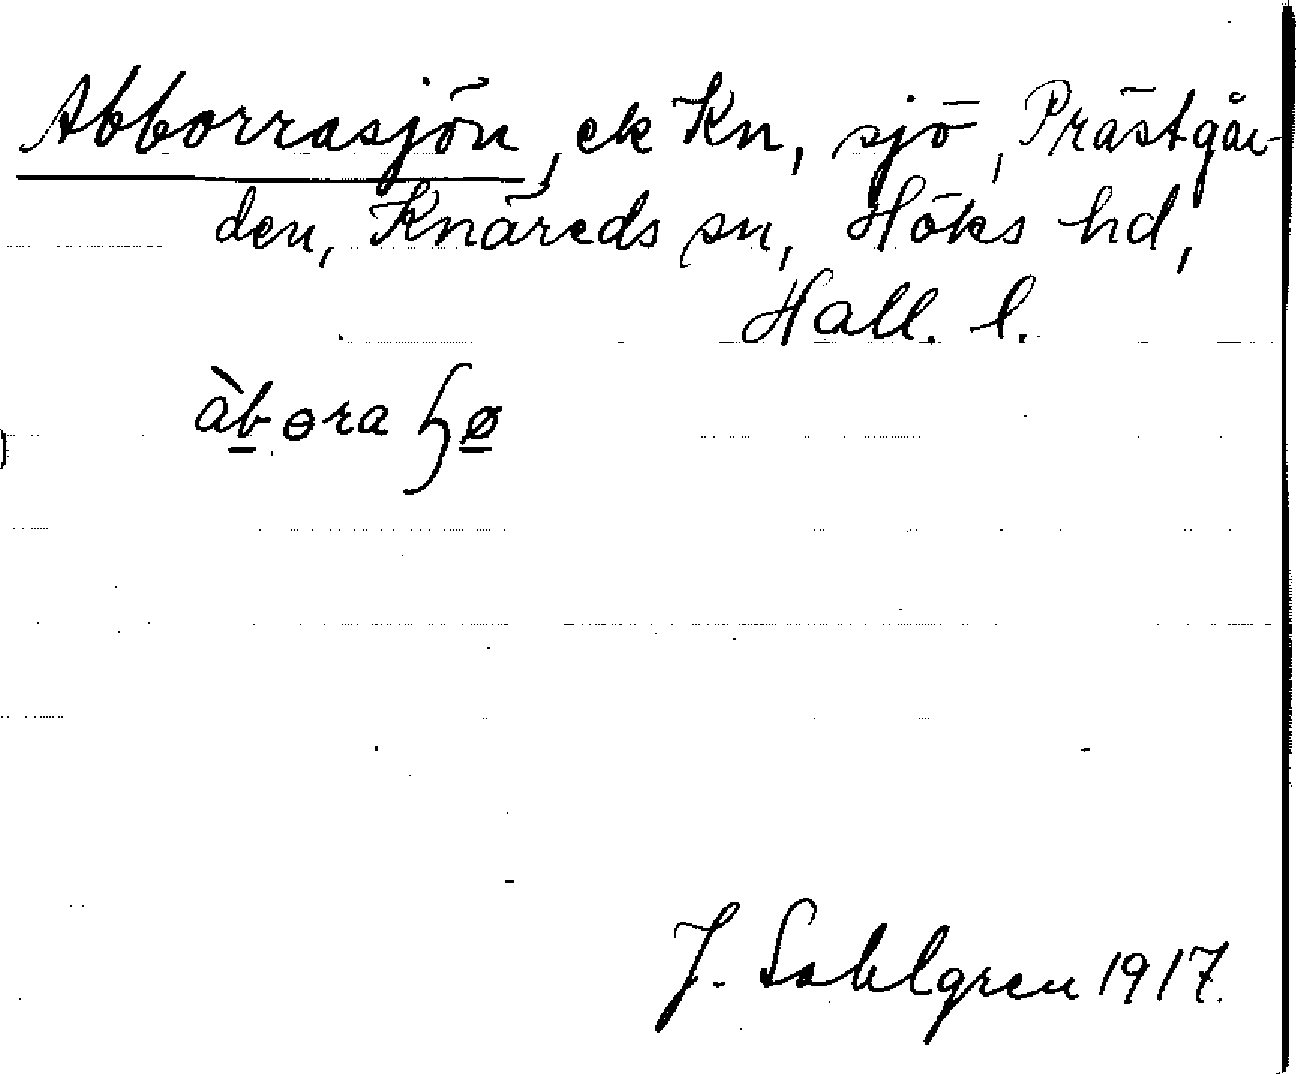 Abborrasjön, ek Kn, sjö, Prästgår-
den, Knäreds sn, Höks hd,
Hall. l.
àb̲ɵra ɧø̲
J. Sahlgren 1917.